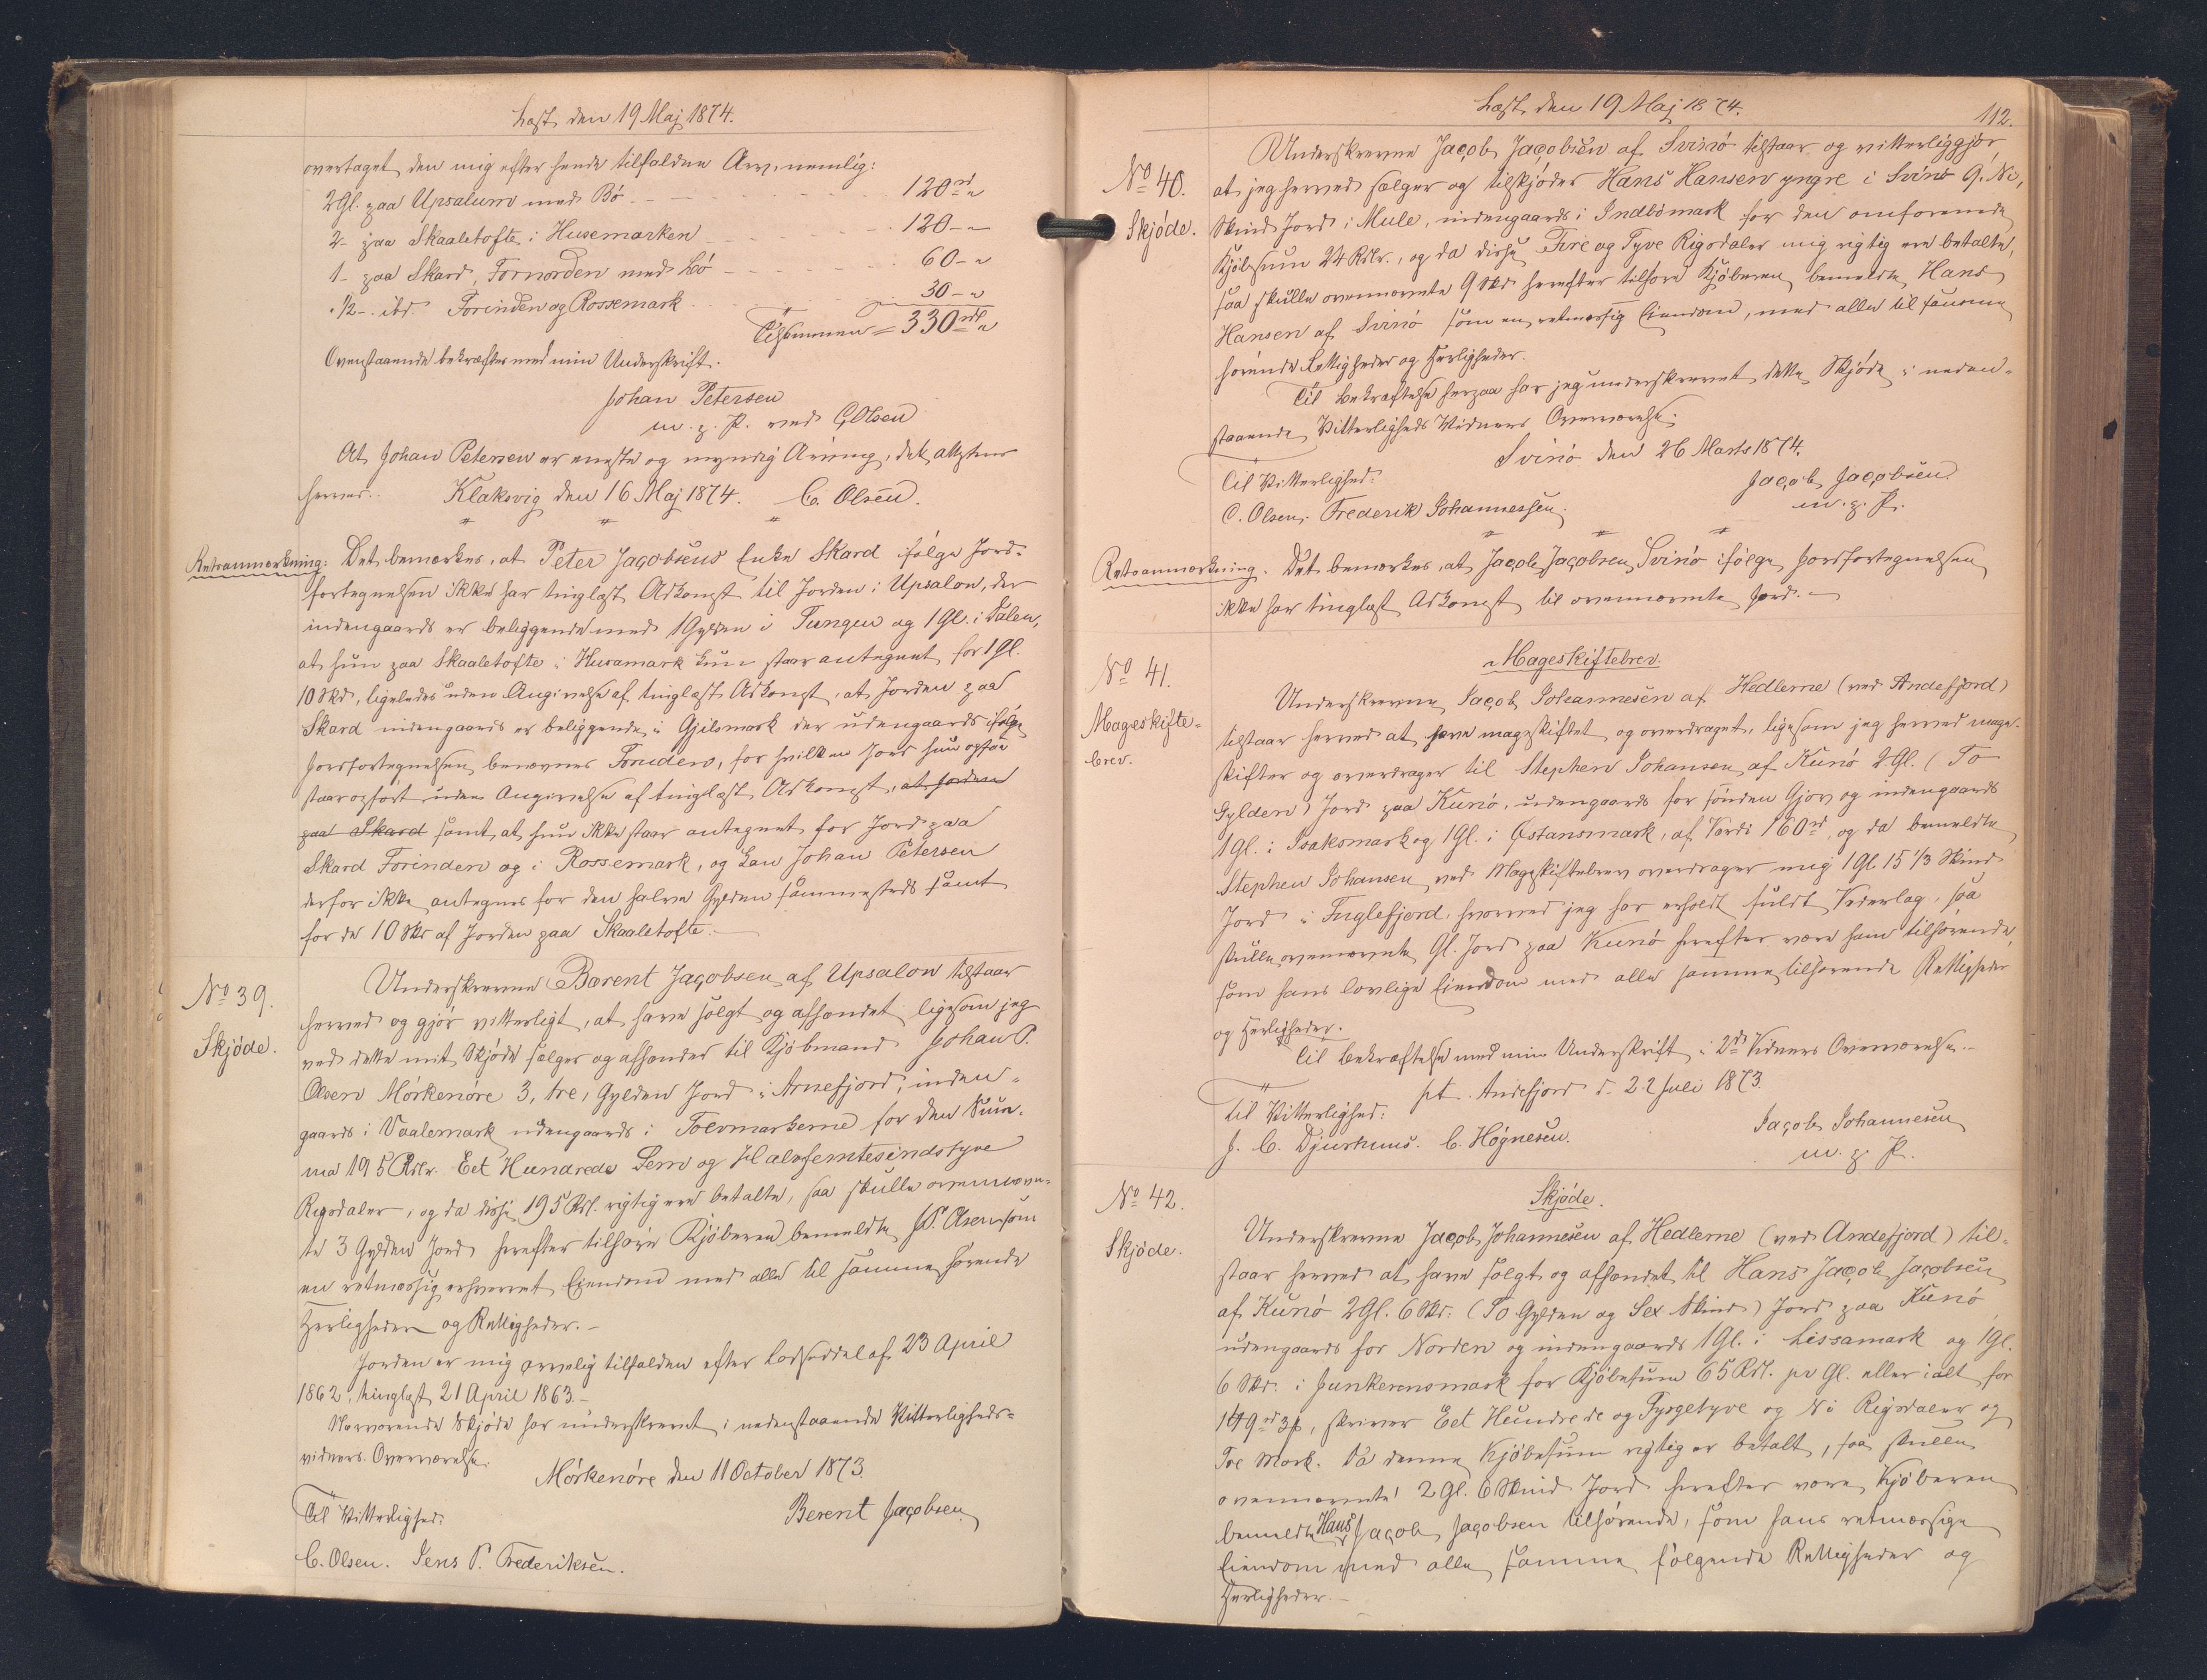 Læst den 19 Maj 1874.
overtaget den mig efter hende tilfaldne Arv, nemlig:
2 Gl. paa Upsalum med Bö 120 rd "
2 - paa Skaaletofte i Husemarken 120 - "
1 - paa Skard, Fornorden med Bö 60 - "
1/2 - ibd. Forinden og Rossemark 30 - "
Tilsammen = 330 rd "
Ovenstaaende bekræftes med min Underskrift.
Johan Petersen
m. p. P. ved C. Olsen
At Johan Petersen er eneste og myndig Arving, det attesteres
herved. Klaksvig den 16 Maj 1874. C. Olsen.
Retsanmærkning: Det bemærkes, at Peter Jacobsens Enke Skard ifølge Jord-
fortegnelsen ikke har tinglæst Adkomst til Jorden i Upsalon, der
indengaards er beliggende med 1 Gylden i Tungen og 1 Gl. i Dalen,
at hun paa Skaaletofte i Husamark kun staar antegnet for 1 Gl.
10 Skd, ligeledes uden Angivelse af tinglæst Adkomst, at Jorden paa
Skard indengaards er beliggende i Gjilsmark der udengaards ifølge
Jordfortegnelsen benævnes Fornden, for hvilken Jord hun ogsaa
staar opført uden Angivelse af tinglæst Adkomst, at Jorden
paa Skard samt, at hun ikke staar antegnet for Jord paa
Skard Forinden og i Rossemark, og kan Johan Petersen
derfor ikke antegnes for den halve Gylden sammesteds samt
for de 10 Skd af Jorden paa Skaaletofte.
No 39.
Skjöde.
Underskrevne Barent Jacobsen af Upsalon tilstaar
herved og gjör vitterligt, at have solgt og afhændet ligesom jeg
ved dette mit Skjöde sælger og afhænder til Kjöbmand Johan P.
Olsen Mörkenöre 3, tre, Gylden Jord i Arnefjord, inden-
gaards i Vaalemark udengaards i Toevmarkerne for den Sum-
ma 195 Rdlr. Eet Hundrede Fem og Halvfemtesindstyve
Rigsdaler, og da disse 195 Rdl. rigtig ere betalte, saa skulle ovennævn-
te 3 Gylden Jord herefter tilhøre Kjöberen bemeldte J. P. Olsen som
en retmæssig erhvervet Eiendom med alle til samme hørende
Herligheder og Rettigheder. -
Jorden er mig arvelig tilfalden efter Lodseddel af 23 April
1862, tinglæst 21 April 1863. -
Nærværende Skjöde har underskrevet i nedenstaaende Vitterligheds-
vidners Overværelse.
Mörkenöre den 11 October 1873.
Til Vitterlighed: Berent Jacobsen
C. Olsen. Jens P. Frederiksen.
Læst den 19 Maj 1874.
112.
No 40.
Skjöde.
Underskrevne Jacob Jacobsen af Svinö tilstaar og vitterliggjör
at jeg herved sælger og tilskjöder Hans Hansen yngre i Svinö 9, Ni,
Skind Jord i Mule, indengaards i Indbömark for den omforenede
Kjöbesum 24 Rdlr., og da disse Fire og Tyve Rigsdaler mig rigtig ere betalte,
saa skulle ovennævnte 9 Skd herefter tilhøre Kjöberen bemeldte Hans
Hansen af Svinö som en retmæssig Eiendom, med alle til samme
hørende Rettigheder og Herligheder.
Til Bekræftelse herpaa har jeg underskrevet dette Skjöde i neden-
staaende Vitterligheds Vidners Overværelse.
Svinö den 26 Marts 1874.
Til Vitterlighed: Jacob Jacobsen
C. Olsen. Frederik Johannessen. m. p. P.
Retsanmærkning. Det bemærkes, at Jacob Jacobsen, Svinö ifølge Jordfortegnelsen
ikke har tinglæst Adkomst til ovennævnte Jord. -
No 41.
Mageskifte-
brev.
Mageskiftebrev.
Underskrevne Jacob Johannesen af Hedlerne (ved Andefjord)
tilstaar herved at have mageskiftet og overdraget, ligesom jeg herved mage-
skifter og overdrager til Stephen Johansen af Kunö 2 Gl. (To
Gylden) Jord paa Kunö, udengaards for sönden Gjov og indengaards
1 Gl. i Isaksmark og 1 Gl. i Østansmark, af Værdi 160 rd, og da bemeldte
Stephen Johansen ved Mageskiftebrev overdrager mig 1 Gl 15 1/3 Skind
Jord i Fuglefjord, hvorved jeg har erholdt fuldt Vederlag, saa
skulle ovennævnte Gl. Jord paa Kunö herefter være ham tilhørende,
som hans lovlige Eiendom med alle samme tilhørende Rettigheder
og Herligheder.
Til Bekræftelse med min Underskrift i 2de Vidners Overværelse. -
pt. Andefjord d. 22 Juli 1873.
Til Vitterlighed: Jacob Johannesen
J. C. Djurhuus. C. Högnesen. m. p. P.
No 42.
Skjöde.
Skjøde.
Underskrevne Jacob Johannesen af Hedlerne (ved Andefjord) til-
staar herved at have solgt og afhændet til Hans Jacob Jacobsen
af Kunö 2 Gl. 6 Skd. (To Gylden og Sex Skind) Jord paa Kunö
udengaards for Norden og indengaards 1 Gl. i Lissamark og 1 Gl.
6 Skd. i Junkerensmark for Kjöbesum 65 Rdl. pr Gl. eller ialt for
149 rd 3 ß, skriver Eet Hundrede og Fyrgetyve og Ni Rigsdaler og
Tre Mark. Da denne Kjöbesum rigtig er betalt, saa skulle
ovennævnte 2 Gl. 6 Skind Jord herefter være Kjöberen
bemeldte Hans Jacob Jacobsen tilhørende, som hans retmæssige
Eiendom med alle samme følgende Rettigheder og
Herligheder. -